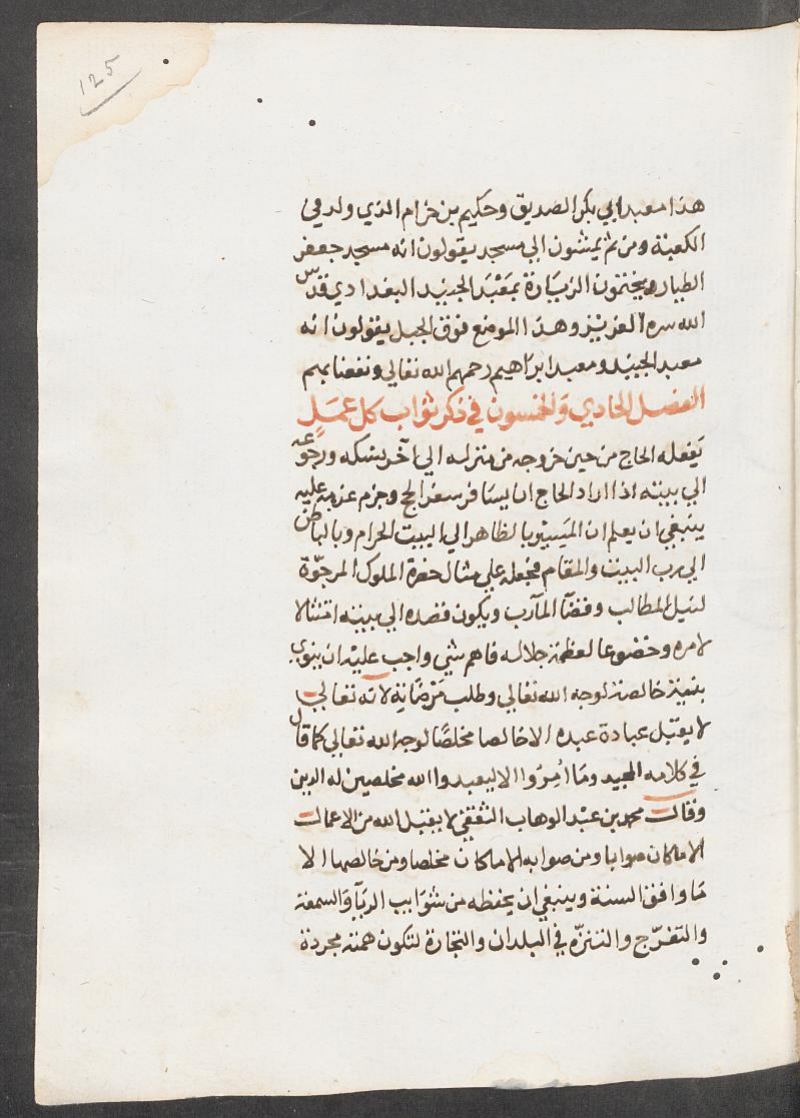 125
هذا معبد ابي بكر الصديق وحكيم بن حزام الذي ولد في
الكعبة ومن ثم يمشون الي مسجد يقولون انه مسجد جعفر
الطيار ويختمون الزيَارة بمَعْبَد الجنيد البغدادي قدس
الله سره العزيز وهذا الموضع فوق الجبل يقولون انه
معبد الجنيد ومعبد ابراهيم رحمهم الله تعالي ونفعنا بهم
الفصل الحادي وَالخمسون في ذكر ثوَاب كل عمَلٍ
يَفعله الحاج من حين خروجه من منزله الي آخر نسكه ورجوعه
الي بيته اذا اراد الحاج ان يسَافر سفر الحج وجزم عزمه عليه
ينبغي ان يعلم ان المَسِيْر بالظاهر الي البيت الحرام وبالباطن
الي رب البيت والمقام فجعله علي مثال حضرة الملوك المرجوّة
لنيل المطالب وقضآ المآرب ويكون قصده الي بيته امتثالا
لامره وخضوعا لعظمة جلاله فاهم شي واجب عليْه ان ينوي
بنية خالصة لوجه الله تعالي وطلب مَرْضَاته لانه تعالي
لا يقبل عبادة عبده الا خالصا مخلصًا لوجه الله تعالي كما قال
في كلامه المجيد ومَا اُمِرُوا الا ليعبدوا الله مخلصين له الدين
وقال محمد بن عبْد الوهاب الثقفي لا يقبل الله من الاعمال
الا ما كان صوابا ومن صوابه الا ما كان مخلصا ومن خالصها الا
مَا وافق السنة وينبغي ان يحفظه من شوَايب الريَآ وَالسمعة
والتفرّج والتنزّه في البلدان والتجارة لتكون همته مجردة